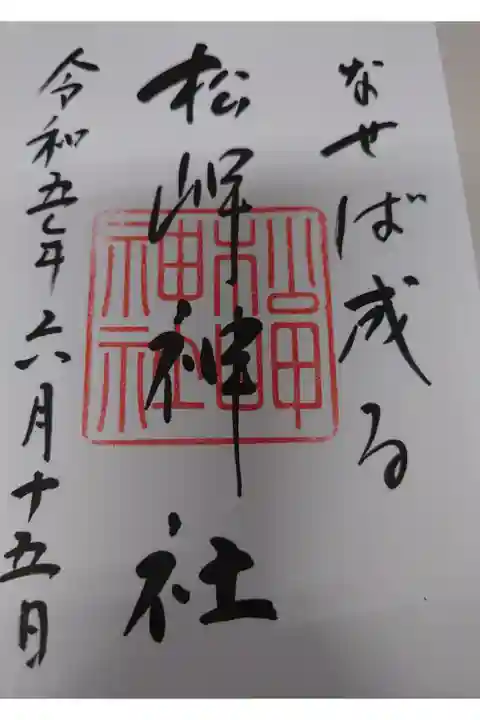 なせば成る
松岬神社
令和五年六月十五日
松岬
神社